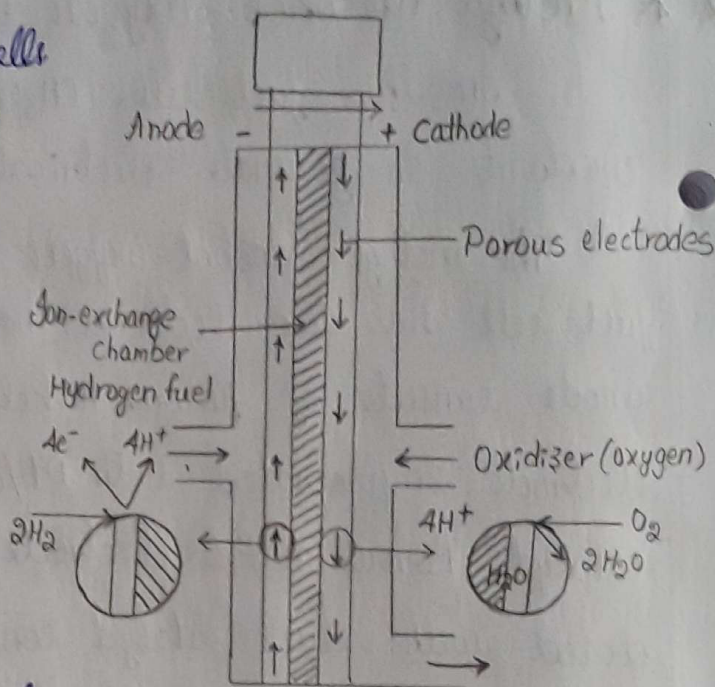 ells
Anode - + Cathode
Porous electrodes
Ion-exchange
chamber
Hydrogen fuel
4e⁻ 4H⁺
Oxidizer (oxygen)
2H₂
4H⁺
O₂
2H₂O
H₂O